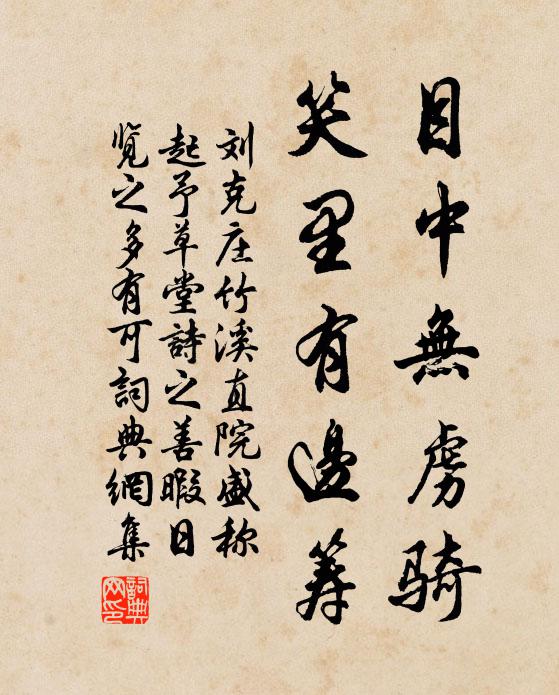 目中無虜骑
笑里有邊筹
刘克庄竹溪直院盛称
起予草堂詩之善暇日
览之多有可詞典網集
詞典網印